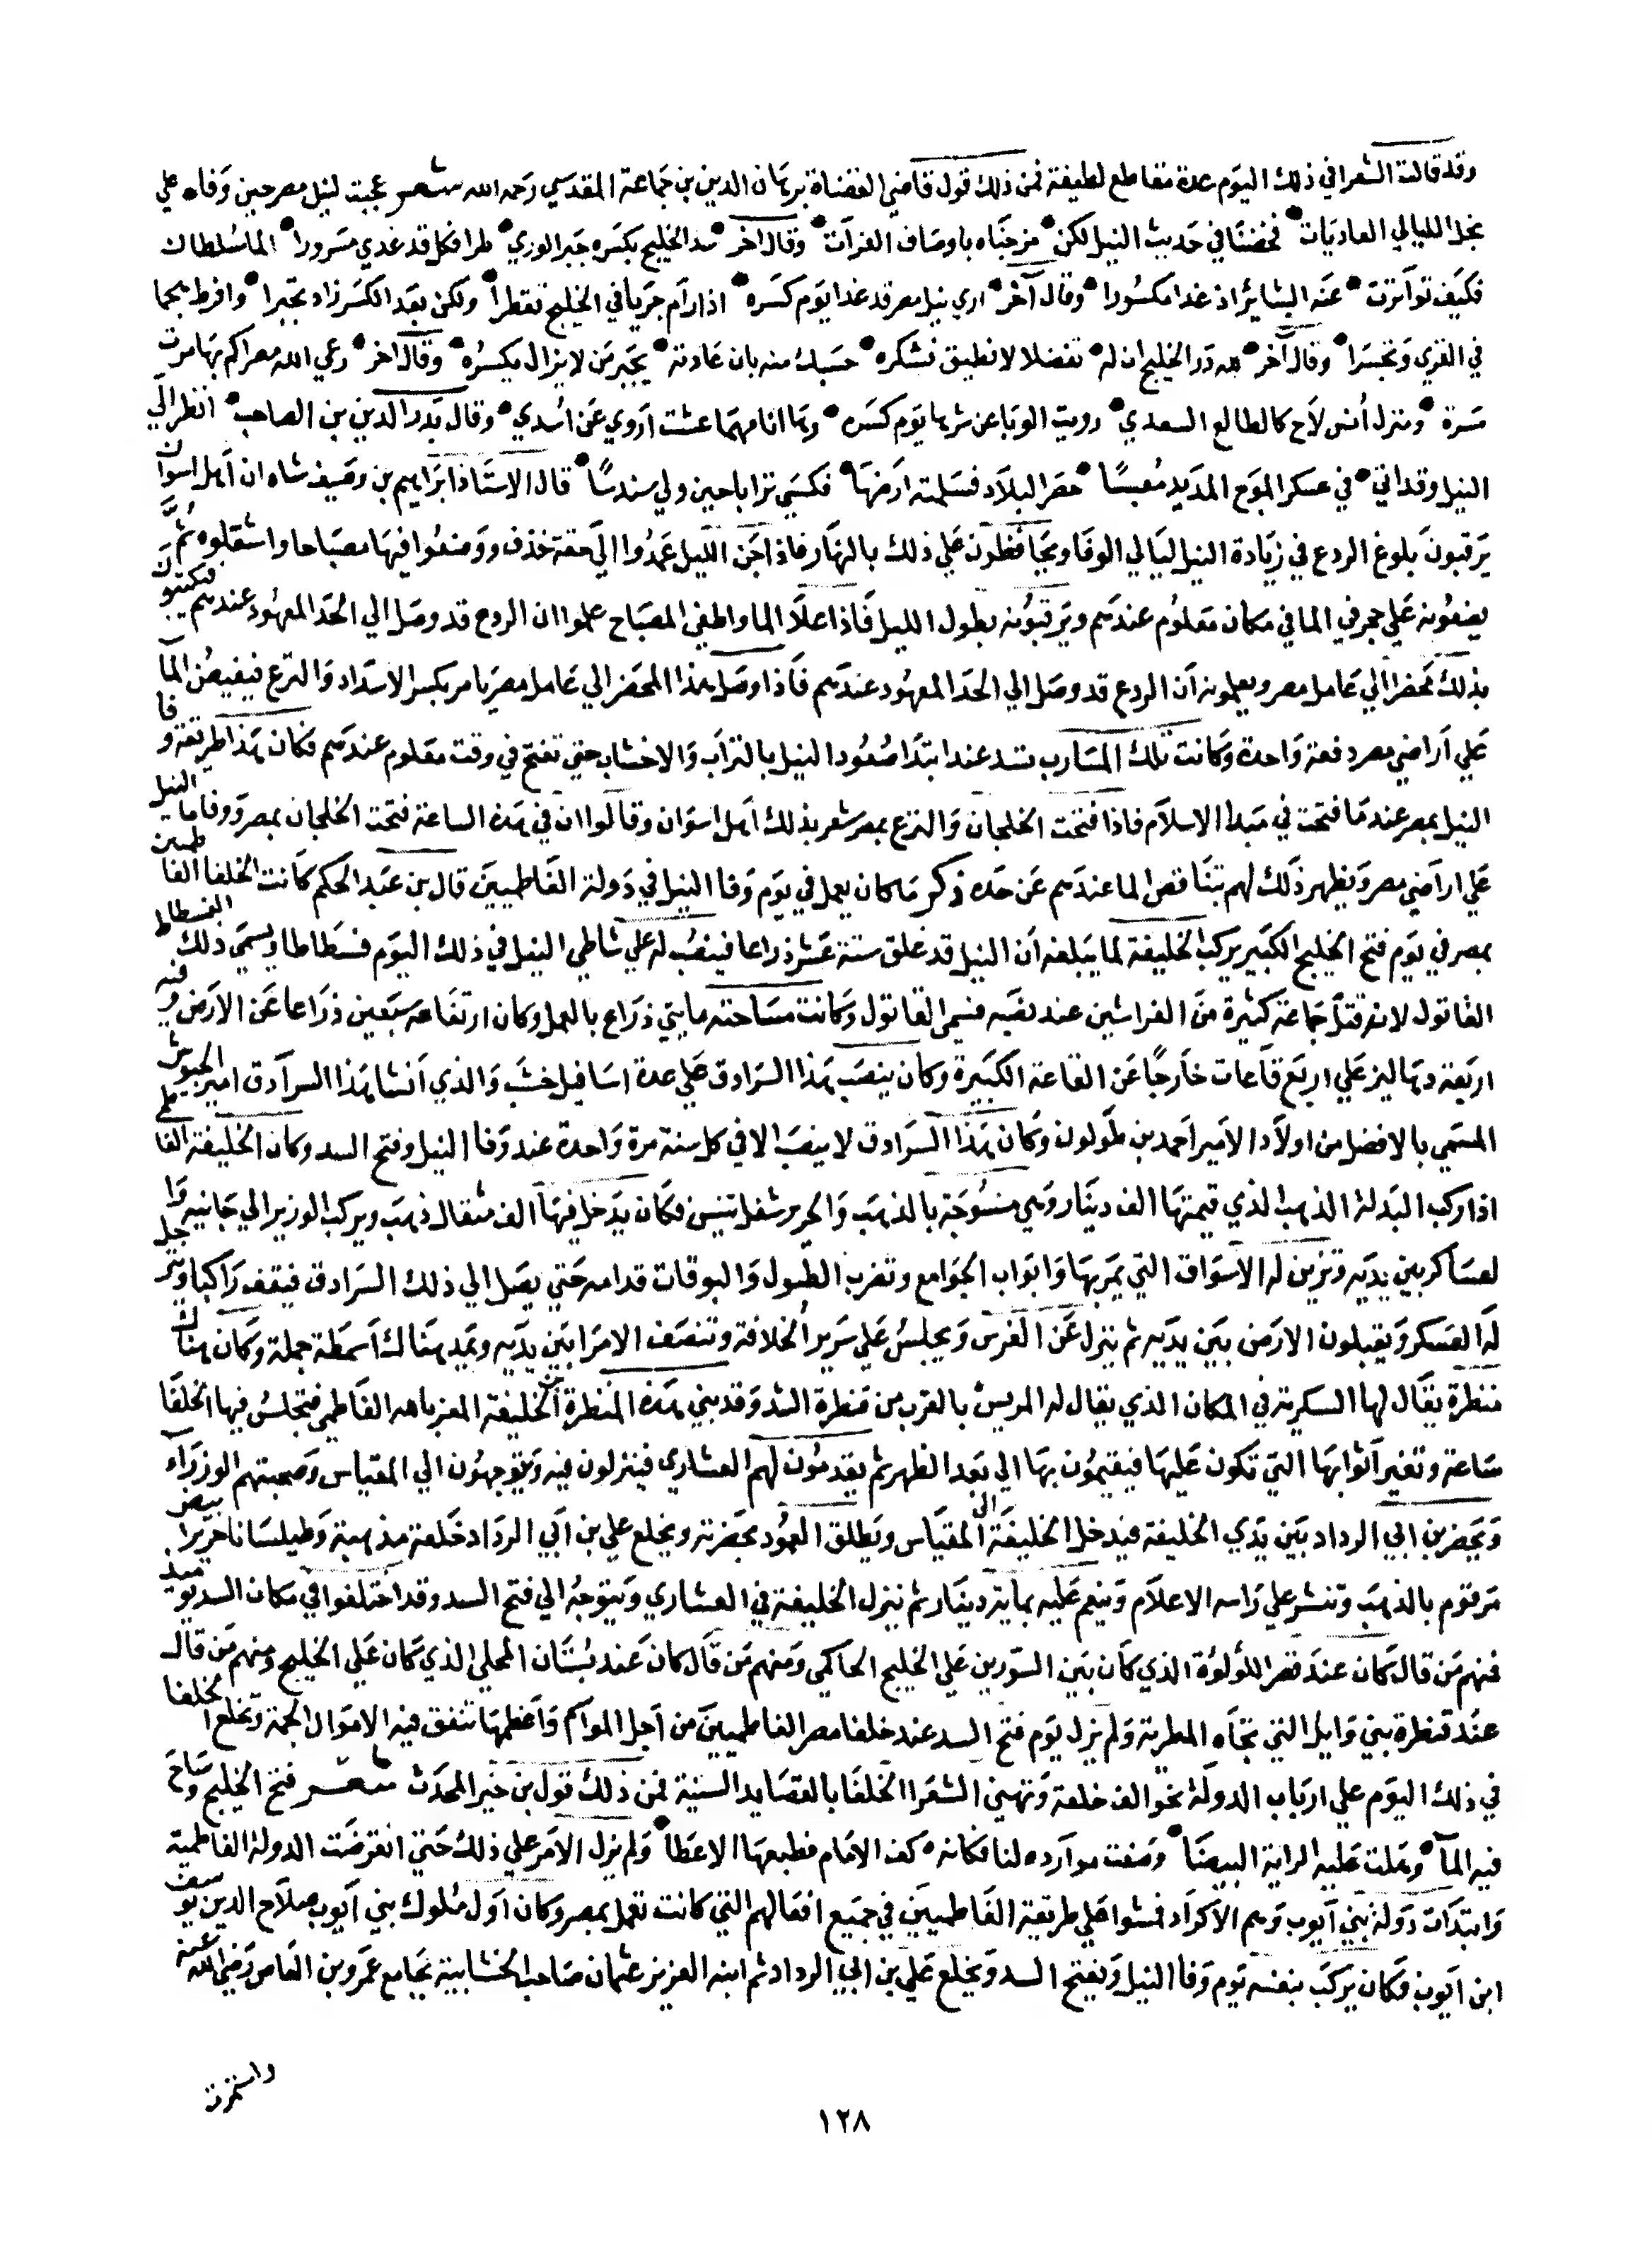 وقد قالت الشعرا في ذلك اليوم عدة مقاطع لطيفة فمن ذلك قول قاضي القضاة برهان الدين بن جماعة المقدسي رحمه الله شعر عجبت لنيل مصر حين وفاه علي
نجل الليالي العاديات فخضنا في حديث النيل لكن مزجناه باوصاف الفرات وقال اخر سد الخليج بكسره جبر الوري طرا فكل قد غدي مسرورا الما سلطان
فكيف تواترت عنه البشاير اذ غدا مكسورا وقال آخر اري نيل مصر قد غدا يوم كسره اذا رام جريا في الخليج تقطرا ولكن بعد الكسر زاد تجبرا وافرط هجما
في القري وتجسرا وقال آخر لله در الخليج ان له تفضلا لا نطيق نشكره حسبك منه بان عادته يجبر من لا يزال يكسره وقال اخر رعي الله مصرا كم بها مرت
مسرة ومنزل أنس لاح كالطالع السعدي رويت الوبا عن شربها يوم كسره وها انا مهما عشت اروي عن اسدي وقال بدر الدين بن الصاحب انظر الي
النيل وقد اتي في عسكر الموج المديد مُعبسًا حصر البلاد فسلمته ارضها فكسي ترابا حين ولي سندسًا قال الاستاذ ابراهيم بن وصيف شاه ان أهل اسوان
يرقبون بلوغ الردع في زيادة النيل ليالي الوفا ويحافظون علي ذلك بالنهار فاذا جن الليل عمدوا الي حقة خذف ووضعوا فيها مصباحا واشقلوه ثُمَّ
يضعونه علي حجر في الما في مكان معلوم عندهم ويرقبونه بطول الليل فاذا علا الما واطفي المصباح علموا ان الردع قد وصل الي الحد المعهود عندهم فيكتبون
بذلك محضرا الي عامل مصر ويعلمونه ان الردع قد وصل الي الحد المعهود عندهم فاذا وصل هذا المحضر الي عامل مصر يامر بكسر الاسداد والترع فيفيض المآ
علي اراضي مصر دفعة واحدة وكانت تلك المسارب تسد عند ابتدا صعود النيل بالتراب والاخشاب حتي تفتح في وقت معلوم عندهم فكان هذا طريقة وفا
النيل بمصر عندما فتحت في مبدا الاسلام فاذا فتحت الخلجان والترع بمصر شعر بذلك اهل اسوان وقالوا ان في هذه الساعة فتحت الخلجان بمصر ووفا ما النيل
علي اراضي مصر ويظهر ذلك لهم بتناقص الما عندهم عن حده ذكر ما كان يعمل في يوم وفا النيل في دولة الفاطميين قال بن عبد الحكم كانت الخلفا الفاطمين
بمصر في يوم فتح الخليج الكبير يركب الخليفة لما يبلغه ان النيل قد غلق ستة عشر ذراعا فينصُب له علي شاطي النيل في ذلك اليوم فسطاطا ويسمي ذلك الفسطاط
القاتول لانه قتل جماعة كثيرة من الفراشين عند نصبه فسمي القاتول وكانت مساحته مايتي ذراع بالعمل وكان ارتفاعه سبعين ذراعا عن الارض وفيه
اربعة دهاليز علي اربع قاعات خارجًا عن القاعة الكبيرة وكان ينصب هذا السرادق علي عدة اساقيل خشب والذي أنشا هذا السرادق امير الجيوش
المسمي بالافضل من اولاد الامير احمد بن طولون وكان هذا السرادق لا ينصب الا في كل سنة مرة واحدة عند وفا النيل وفتح السد وكان الخليفة الفاطمي
اذا ركب البدلة الذهب الذي قيمتها الف دينار وهي منسوجة بالذهب والحرير شغل تنيس فكان يدخل فيها الف مثقال ذهب ويركب الوزير الي جانبه وا
لعساكر بين يديه وتزين له الاسواق التي يمر بها وابواب الجوامع وتضرب الطبول والبوقات قدامه حتي يصل الي ذلك السرادق فيقف راكبا ويترجل
له العسكر ويقبلون الارض بين يديه ثم ينزل عن الفرس ويجلس علي سرير الخلافة وتنصف الامرا بين يديه ويمد هناك أسمطة جملة وكان هناك
منظرة يقال لها السكرية في المكان الذي يقال له المريس بالقرب من قنطرة السد وقد بني هذه المنظرة الخليفة المعز بالله الفاطمي فتجلس فيها الخلفا
ساعة وتغير أثوابها التي تكون عليها فيقيمون بها الي بعد الظهر ثم يقدمون لهم العشاري فينزلون فيه ويتوجهون الي المقياس وصحبتهم الوزرآء
ويحضر بن ابي الرداد بين يدي الخليفة فيدخل الخليفة الى المقياس ويطلق العمود بحضرته ويخلع علي بن ابي الرداد خلعة مذهبية وطيلسانا حريرا بيض
مرقوم بالذهب وتنشر علي راسه الاعلام وينعم عليه بماية دينار ثم ينزل الخليفة في العشاري ويتوجه الي فتح السد وقد اختلفوا في مكان السد يوميد
فمنهم من قال كان عند قصر اللؤلؤة الذي كان بين السورين علي الخليج الحاكمي ومنهم من قال كان عند بُستان المحلي الذي كان علي الخليج ومنهم من قال
عند قنطرة بني وايل التي تجاه المطرية ولم يزل يوم فتح السد عند خلفا مصر الفاطميين من اجل المواكم واعظمها تنفق فيه الاموال الجمة وتخلع الخلفا
في ذلك اليوم علي ارباب الدولة نحو الف خلعة وتهني الشعرا الخلفا بالقصايد السنية فمن ذلك قول بن خير المحدث شعر فتح الخليج وساح
فيه المآ وعلت عليه الراية البيضا وصفت موارده لنا فكانه كف الامام فطبعها الاعطا ولم يزل الامر علي ذلك حتي انقرضت الدولة الفاطمية
وابتدات دولة بني أيوب وهم الاكراد فمشوا علي طريقة الفاطميين في جميع افعالهم التي كانت تعمل بمصر وكان اول ملوك بني أيوب صلاح الدين يوسف
ابن ايوب فكان يركب بنفسه يوم وفا النيل ويفتح السد ويخلع علي بن ابي الرداد ثم ابنه العزيز عثمان صاحب الخشابية بجامع عمرو بن العاص رضي الله عنه
واستمرت
١٢٨